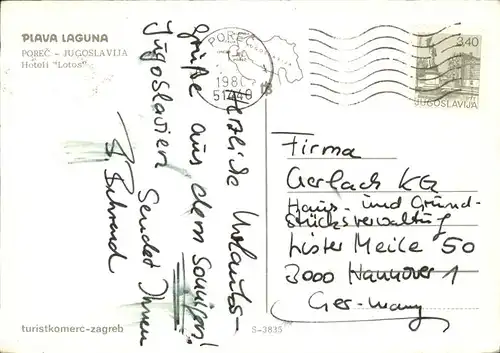 PLAVA LAGUNA
POREČ - JUGOSLAVIJA
Hoteli "Lotos"
POREČ
1980
51440
3,40
JUGOSLAVIJA
Herzliche Urlaubs-
grüße aus dem sonnigen
Jugoslavien
Sendet Ihnen
Firma
Gerlach KG
Haus- und Grund-
stücksverwaltung
Lister Meile 50
3000 Hannover 1
Germany
turistkomerc-zagreb
S-3835